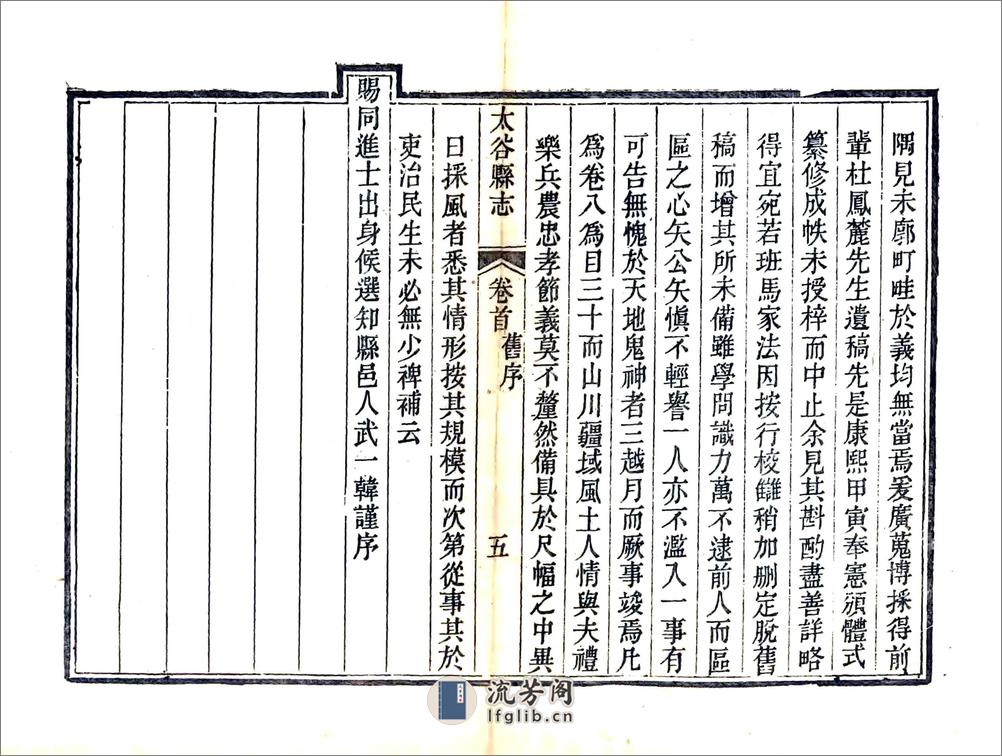 隅見未廓町畦於義均無當焉爰廣蒐博採得前
輩杜鳳麓先生遺稿先是康熙甲寅奉憲頒體式
纂修成帙未授梓而中止余見其斟酌盡善詳略
得宜宛若班馬家法因按行校讎稍加刪定脫舊
稿而增其所未備雖學問識力萬不逮前人而區
區之心矢公矢愼不輕譽一人亦不濫入一事有
可告無愧於天地鬼神者三越月而厥事竣焉凡
為卷八為目三十而山川疆域風土人情與夫禮
樂兵農忠孝節義莫不釐然備具於尺幅之中異
太谷縣志 卷首 舊序 五
日採風者悉其情形按其規模而次第從事其於
吏治民生未必無少裨補云
賜同進士出身候選知縣邑人武一韓謹序
流芳阁
lfglib.cn